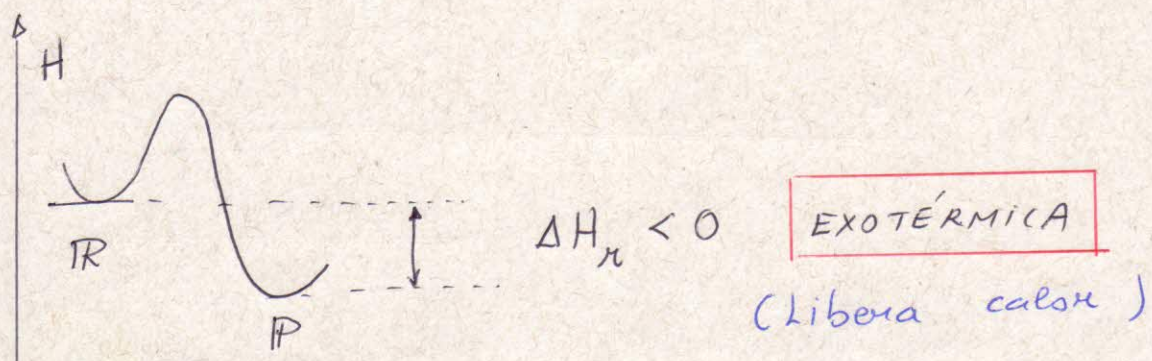 H
R
ΔHr < 0
EXOTÉRMICA
P
(Libera calor)